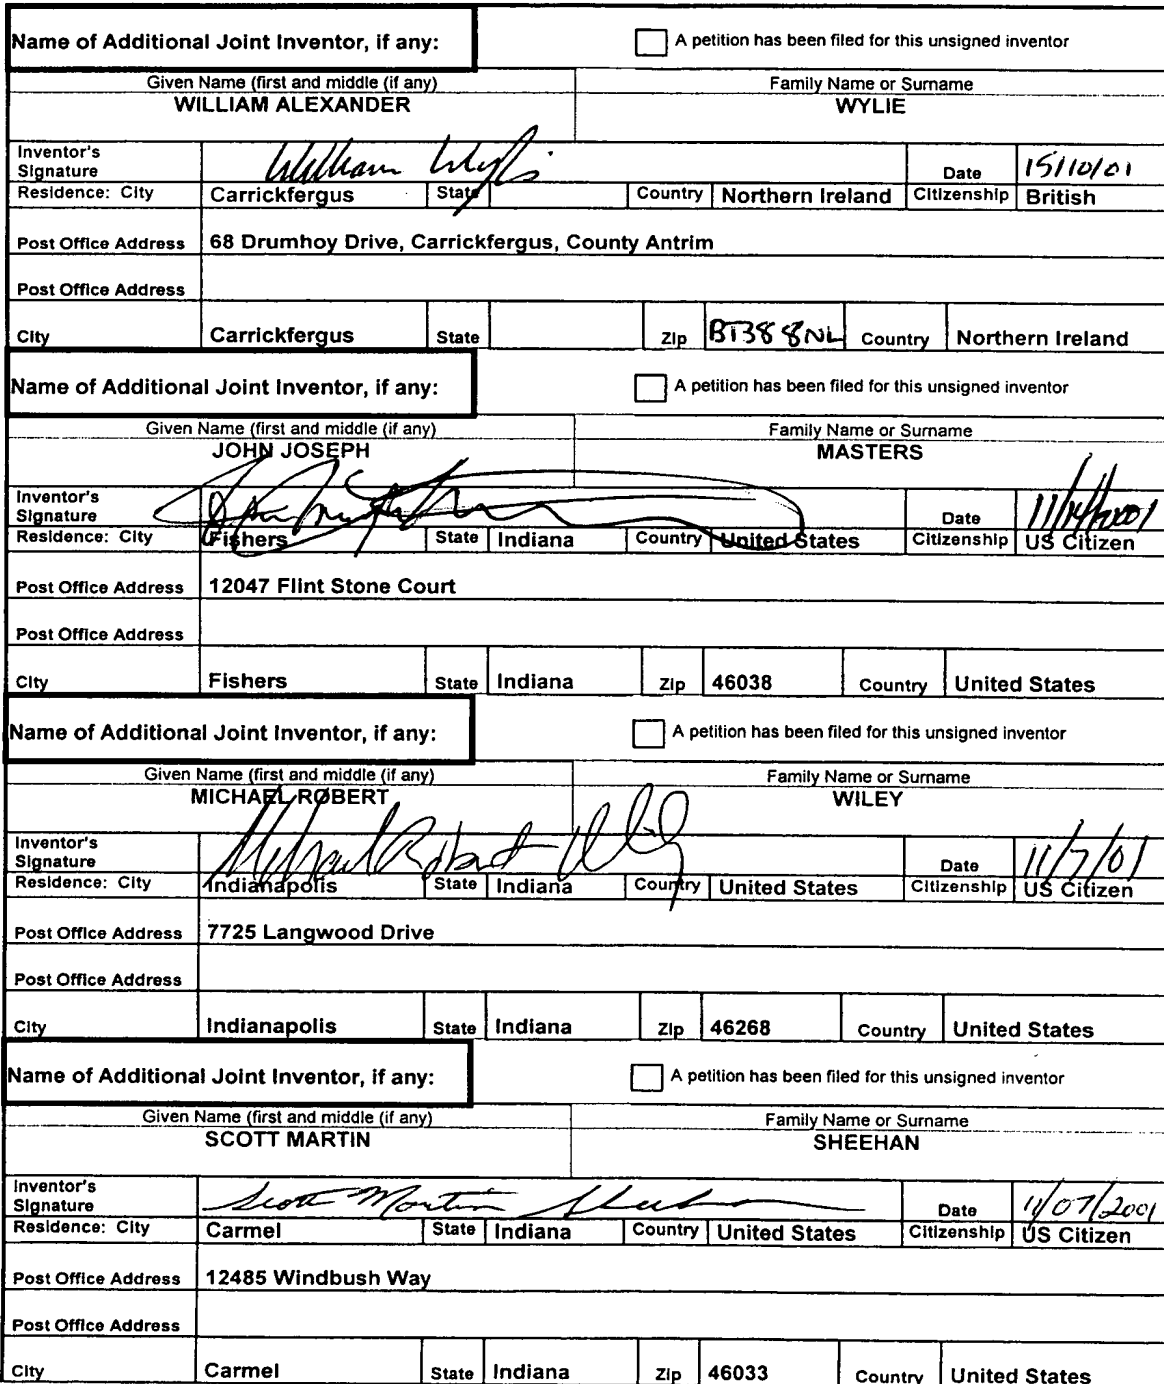 Name of Additional Joint Inventor, if any: A petition has been filed for this unsigned inventor
Given Name (first and middle (if any) Family Name or Surname
WILLIAM ALEXANDER WYLIE
Inventor's
Signature William Wylie Date 15/10/01
Residence: City Carrickfergus State Country Northern Ireland Citizenship British
Post Office Address 68 Drumhoy Drive, Carrickfergus, County Antrim
Post Office Address
City Carrickfergus State Zip BT38 8NL Country Northern Ireland
Name of Additional Joint Inventor, if any: A petition has been filed for this unsigned inventor
Given Name (first and middle (if any) Family Name or Surname
JOHN JOSEPH MASTERS
Inventor's
Signature Date
Residence: City Fishers State Indiana Country United States Citizenship US Citizen
Post Office Address 12047 Flint Stone Court
Post Office Address
City Fishers State Indiana Zip 46038 Country United States
Name of Additional Joint Inventor, if any: A petition has been filed for this unsigned inventor
Given Name (first and middle (if any) Family Name or Surname
MICHAEL ROBERT WILEY
Inventor's
Signature Michael Robert Wiley Date 11/7/01
Residence: City Indianapolis State Indiana Country United States Citizenship US Citizen
Post Office Address 7725 Langwood Drive
Post Office Address
City Indianapolis State Indiana Zip 46268 Country United States
Name of Additional Joint Inventor, if any: A petition has been filed for this unsigned inventor
Given Name (first and middle (if any) Family Name or Surname
SCOTT MARTIN SHEEHAN
Inventor's
Signature Scott Martin Sheehan Date 11/07/2001
Residence: City Carmel State Indiana Country United States Citizenship US Citizen
Post Office Address 12485 Windbush Way
Post Office Address
City Carmel State Indiana Zip 46033 Country United States